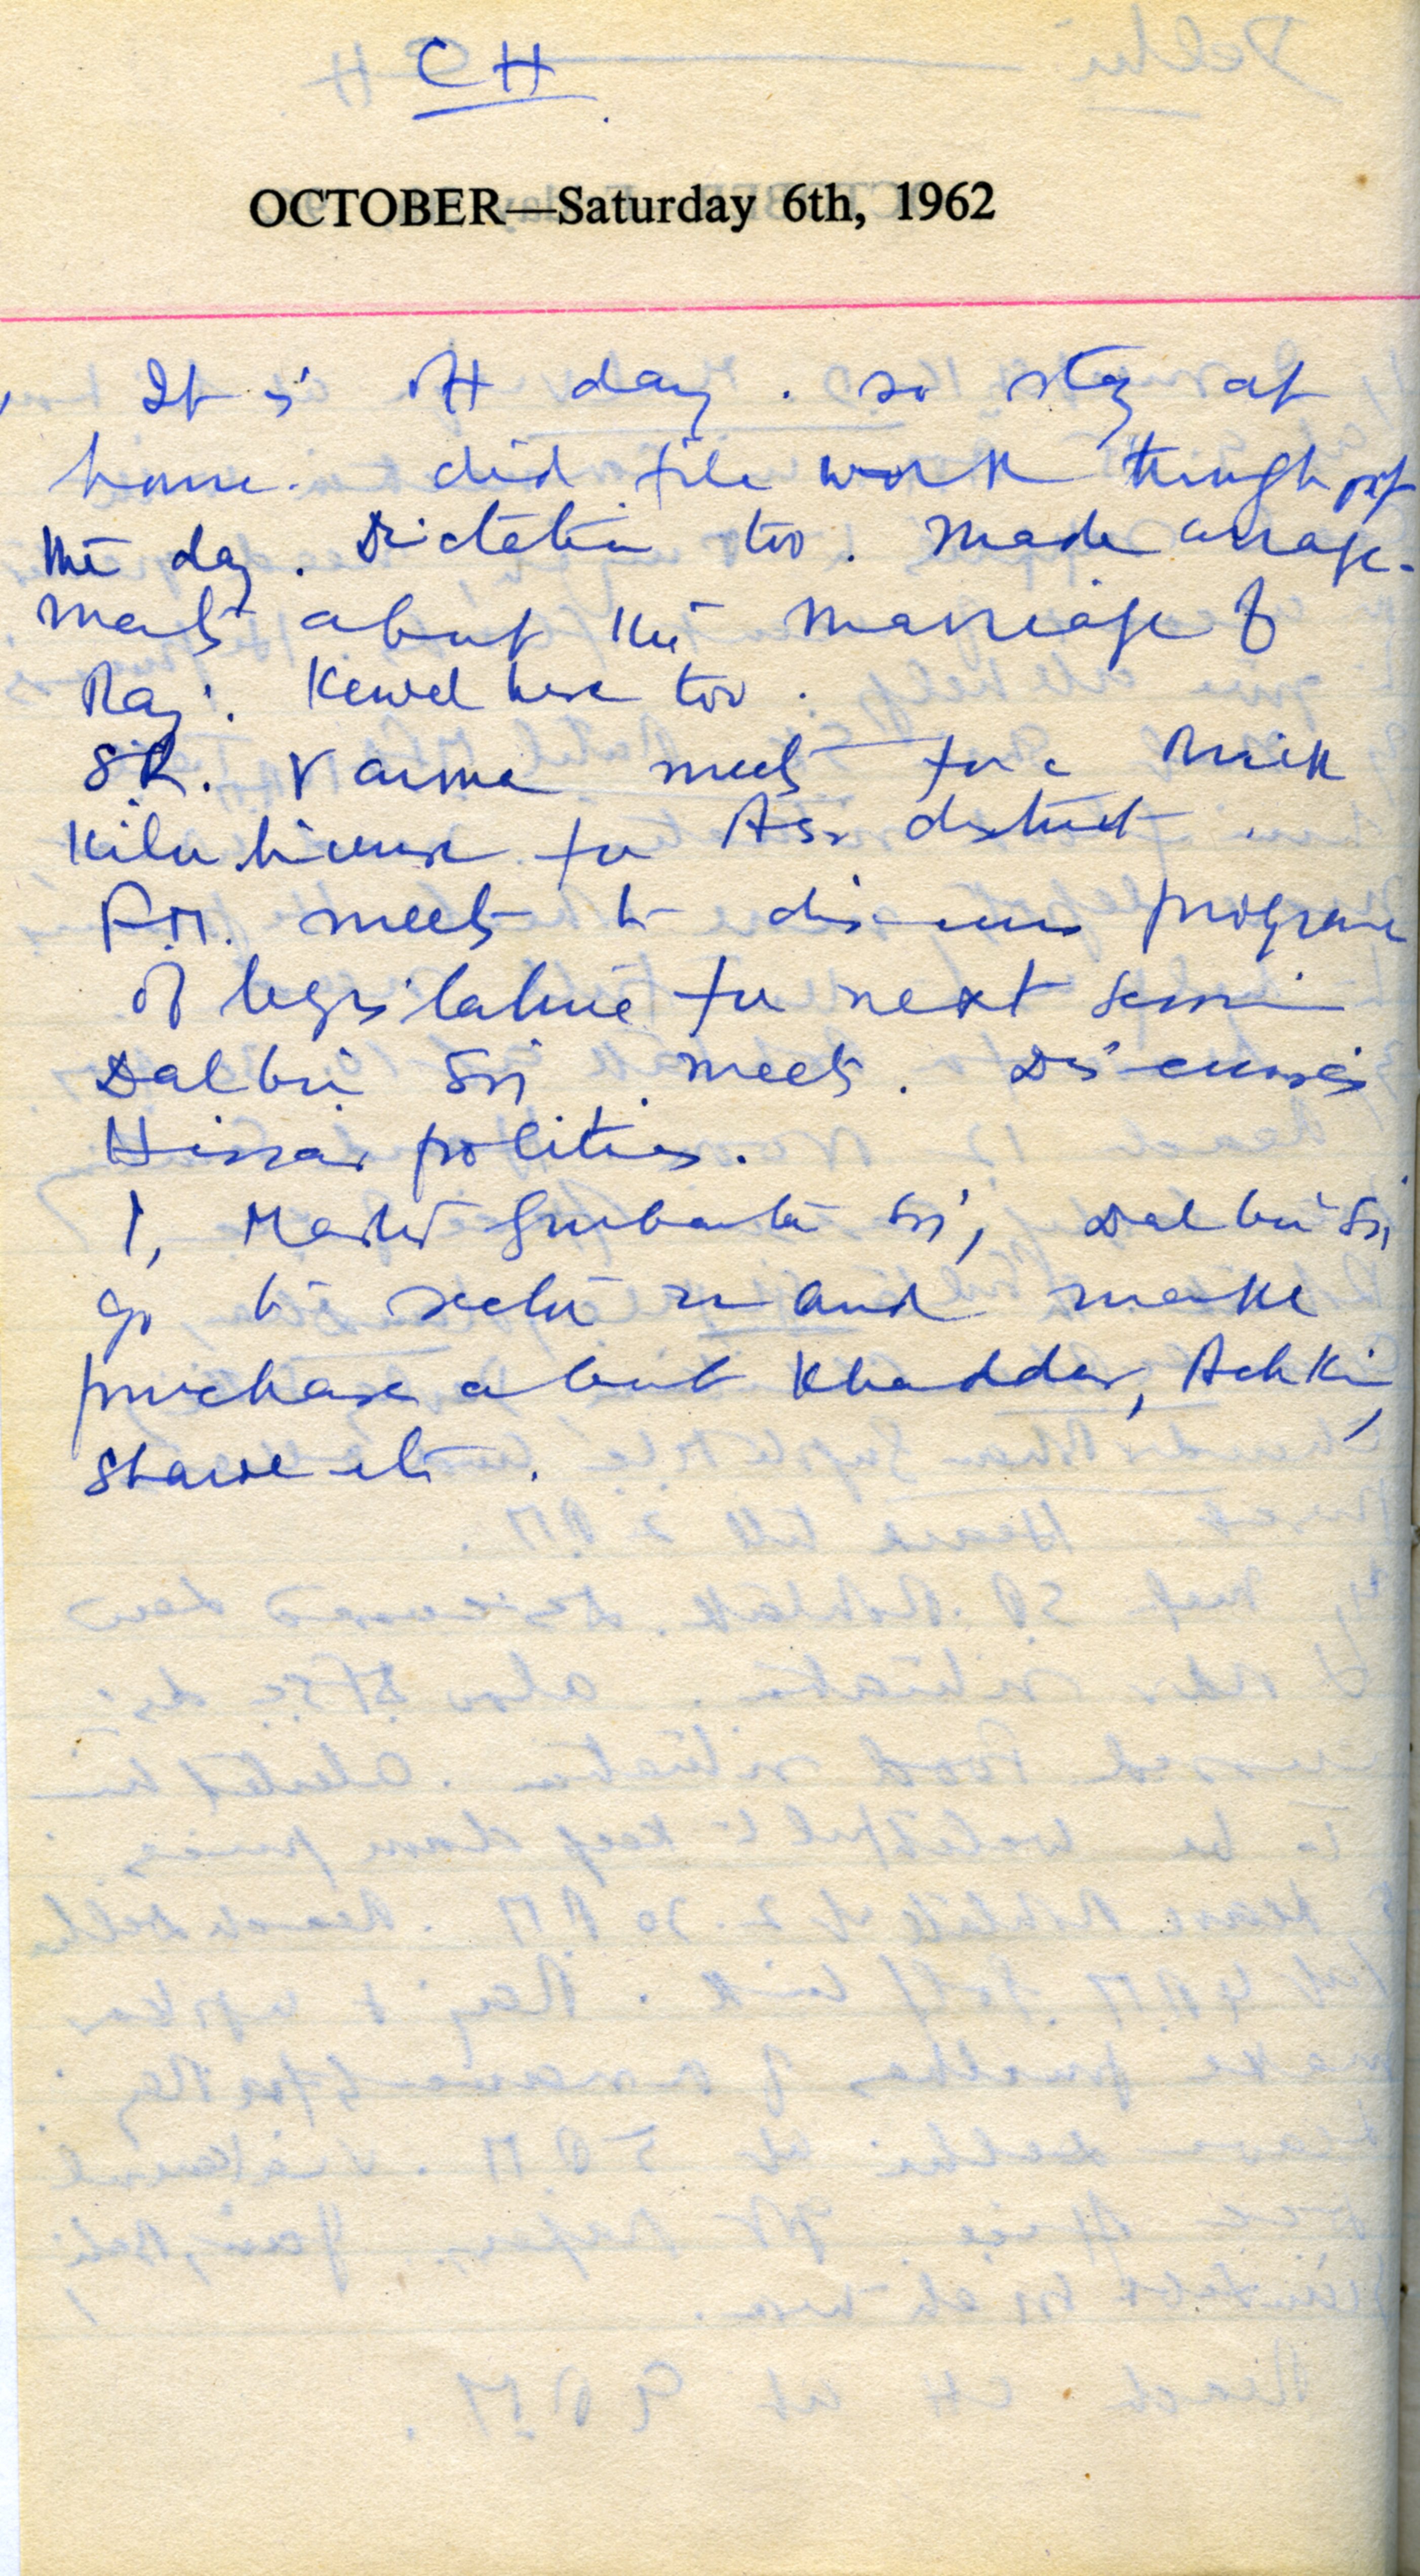 CH
OCTOBER—Saturday 6th, 1962
It is off day. so stay at
home. did file work through out
the day. Dictation too. Made arrange-
ments about the marriage of
Raj. Kewal here too.
S.R. Varma meets for a Brick
Kiln license for Assr district.
P.M. meets to discuss programe
of legislature for next session
Dalbir Sn meets. Discusses
Hissar politics.
I, Master Gurbanta Sn, Dalbir Sn
go to sector 22 and make
purchase about Khaddar, Achkin,
etc.